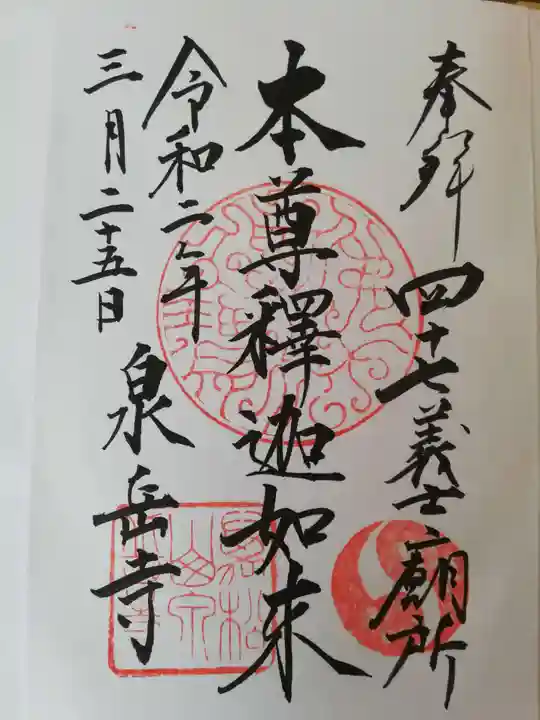 奉拝 四十七義士廟所
本尊釋迦如来
令和二年
三月二十五日
泉岳寺
萬松
山泉
岳寺